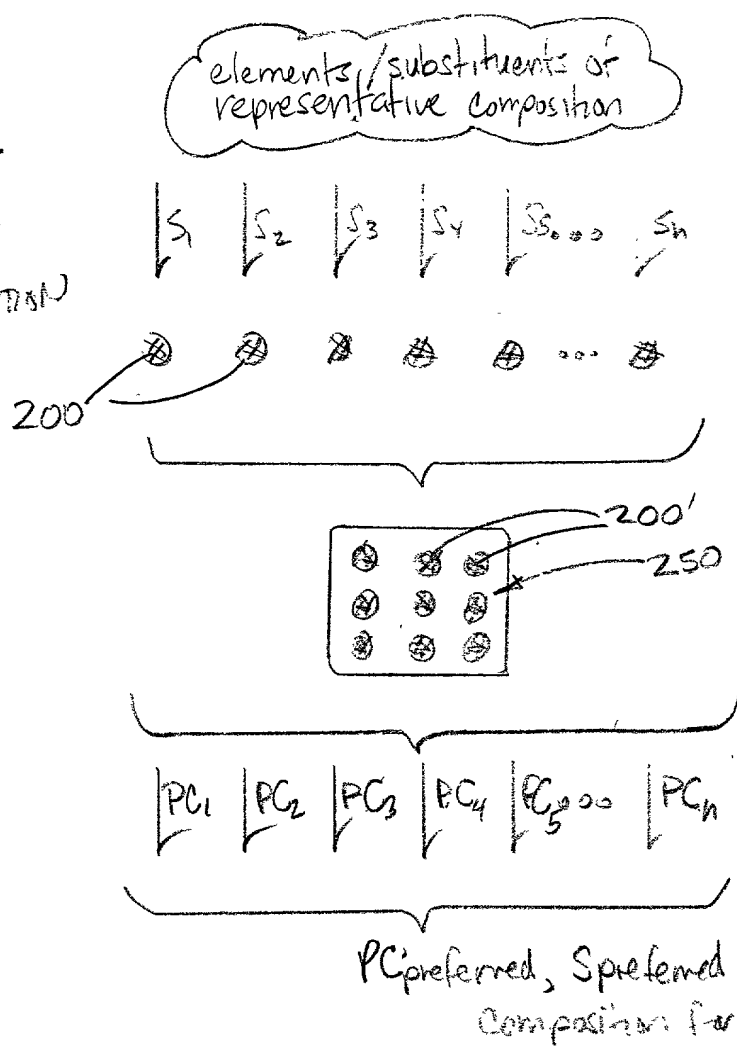 elements/substituents of
representative composition
S1 S2 S3 S4 S5... Sn
200
200'
250
PC1 PC2 PC3 PC4 PC5... PCn
PCpreferred, Spreferred
composition for